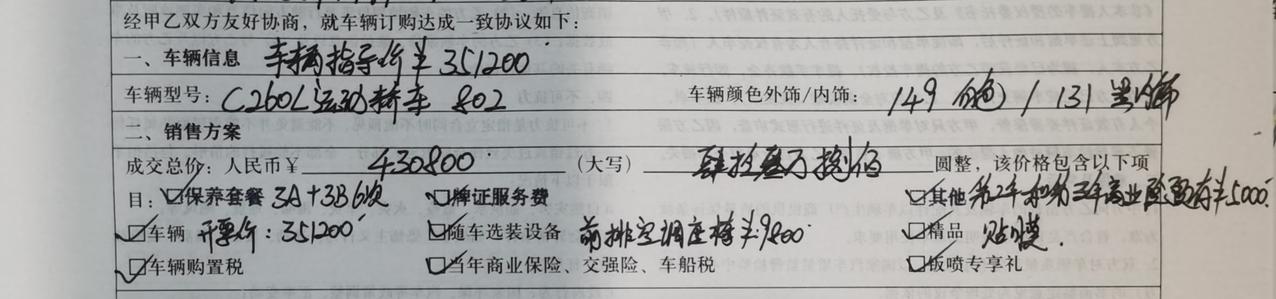 经甲乙双方友好协商，就车辆订购达成一致协议如下：
一、车辆信息 车辆指导价¥351200
车辆型号：C260L运动轿车 802 车辆颜色外饰/内饰：149白色/131黑内饰
二、销售方案
成交总价：人民币¥ 430800 (大写) 肆拾叁万捌佰 圆整，该价格包含以下项
目：☑保养套餐 3A+3B6次 ☑牌证服务费 ☑其他 第2年和第三年商业险 ¥5000.
☑车辆 开票价：351200 ☑随车选装设备 前排空调座椅¥9800 ☑精品 贴膜.
☑车辆购置税 ☑当年商业保险、交强险、车船税 ☑钣喷专享礼